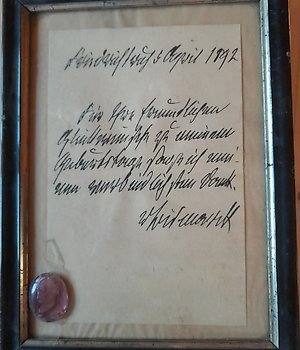 Friedrichsruh 5 April 1892
Für Ihre freundlichen
Glückwünsche zu meinem
Geburtstage sage ich mei-
nen verbindlichsten Dank.
v Bismarck